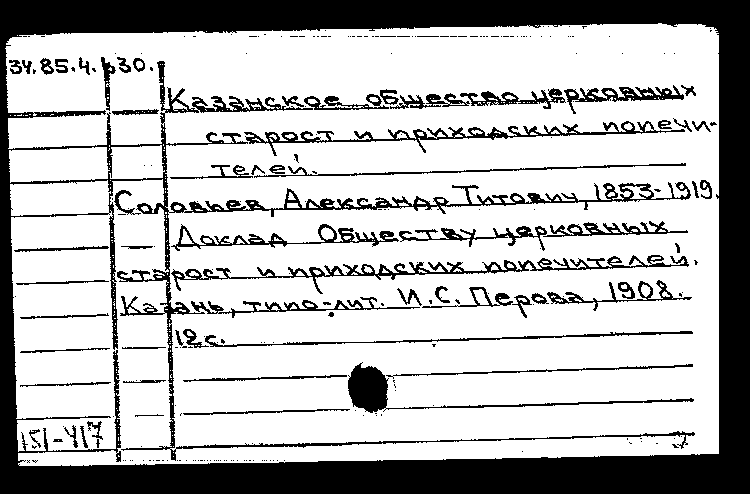 34.85.4.630.
Казанское общество церковных
старост и приходских попечи-
телей.
Соловьев, Александр Титович, 1853-1919.
Доклад Обществу церковных
старост и приходских попечителей.
Казань, типо-лит. И.С. Перова, 1908.
12с.
151-417